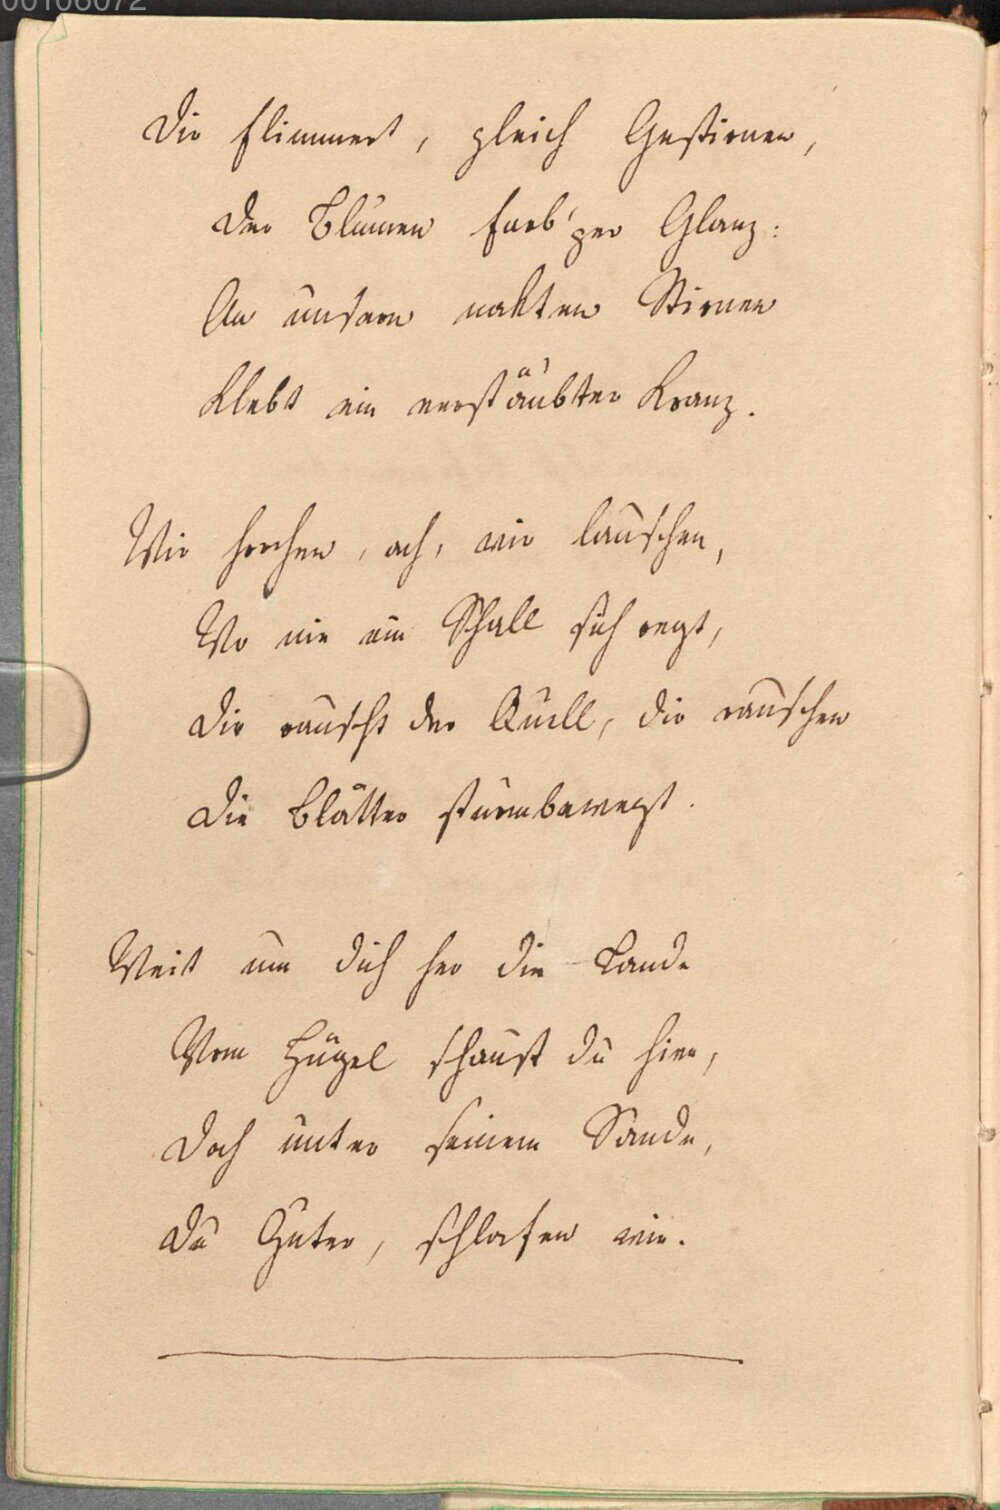 00106072
Dir flimmert, gleich Gestirnen,
Der Blumen farb'ger Glanz:
An unsern nakten Stirnen
Klebt ein verstäubter Kranz.
Wir horchen, ach, wir lauschen,
Wo nie ein Schall sich regt,
Dir rauscht der Quell, dir rauschen
Die Blätter sturmbewegt.
Weit um dich her die Lande
Vom Hügel schaust du hier,
Doch unter seinem Sande,
Du Guter, schlafen wir.